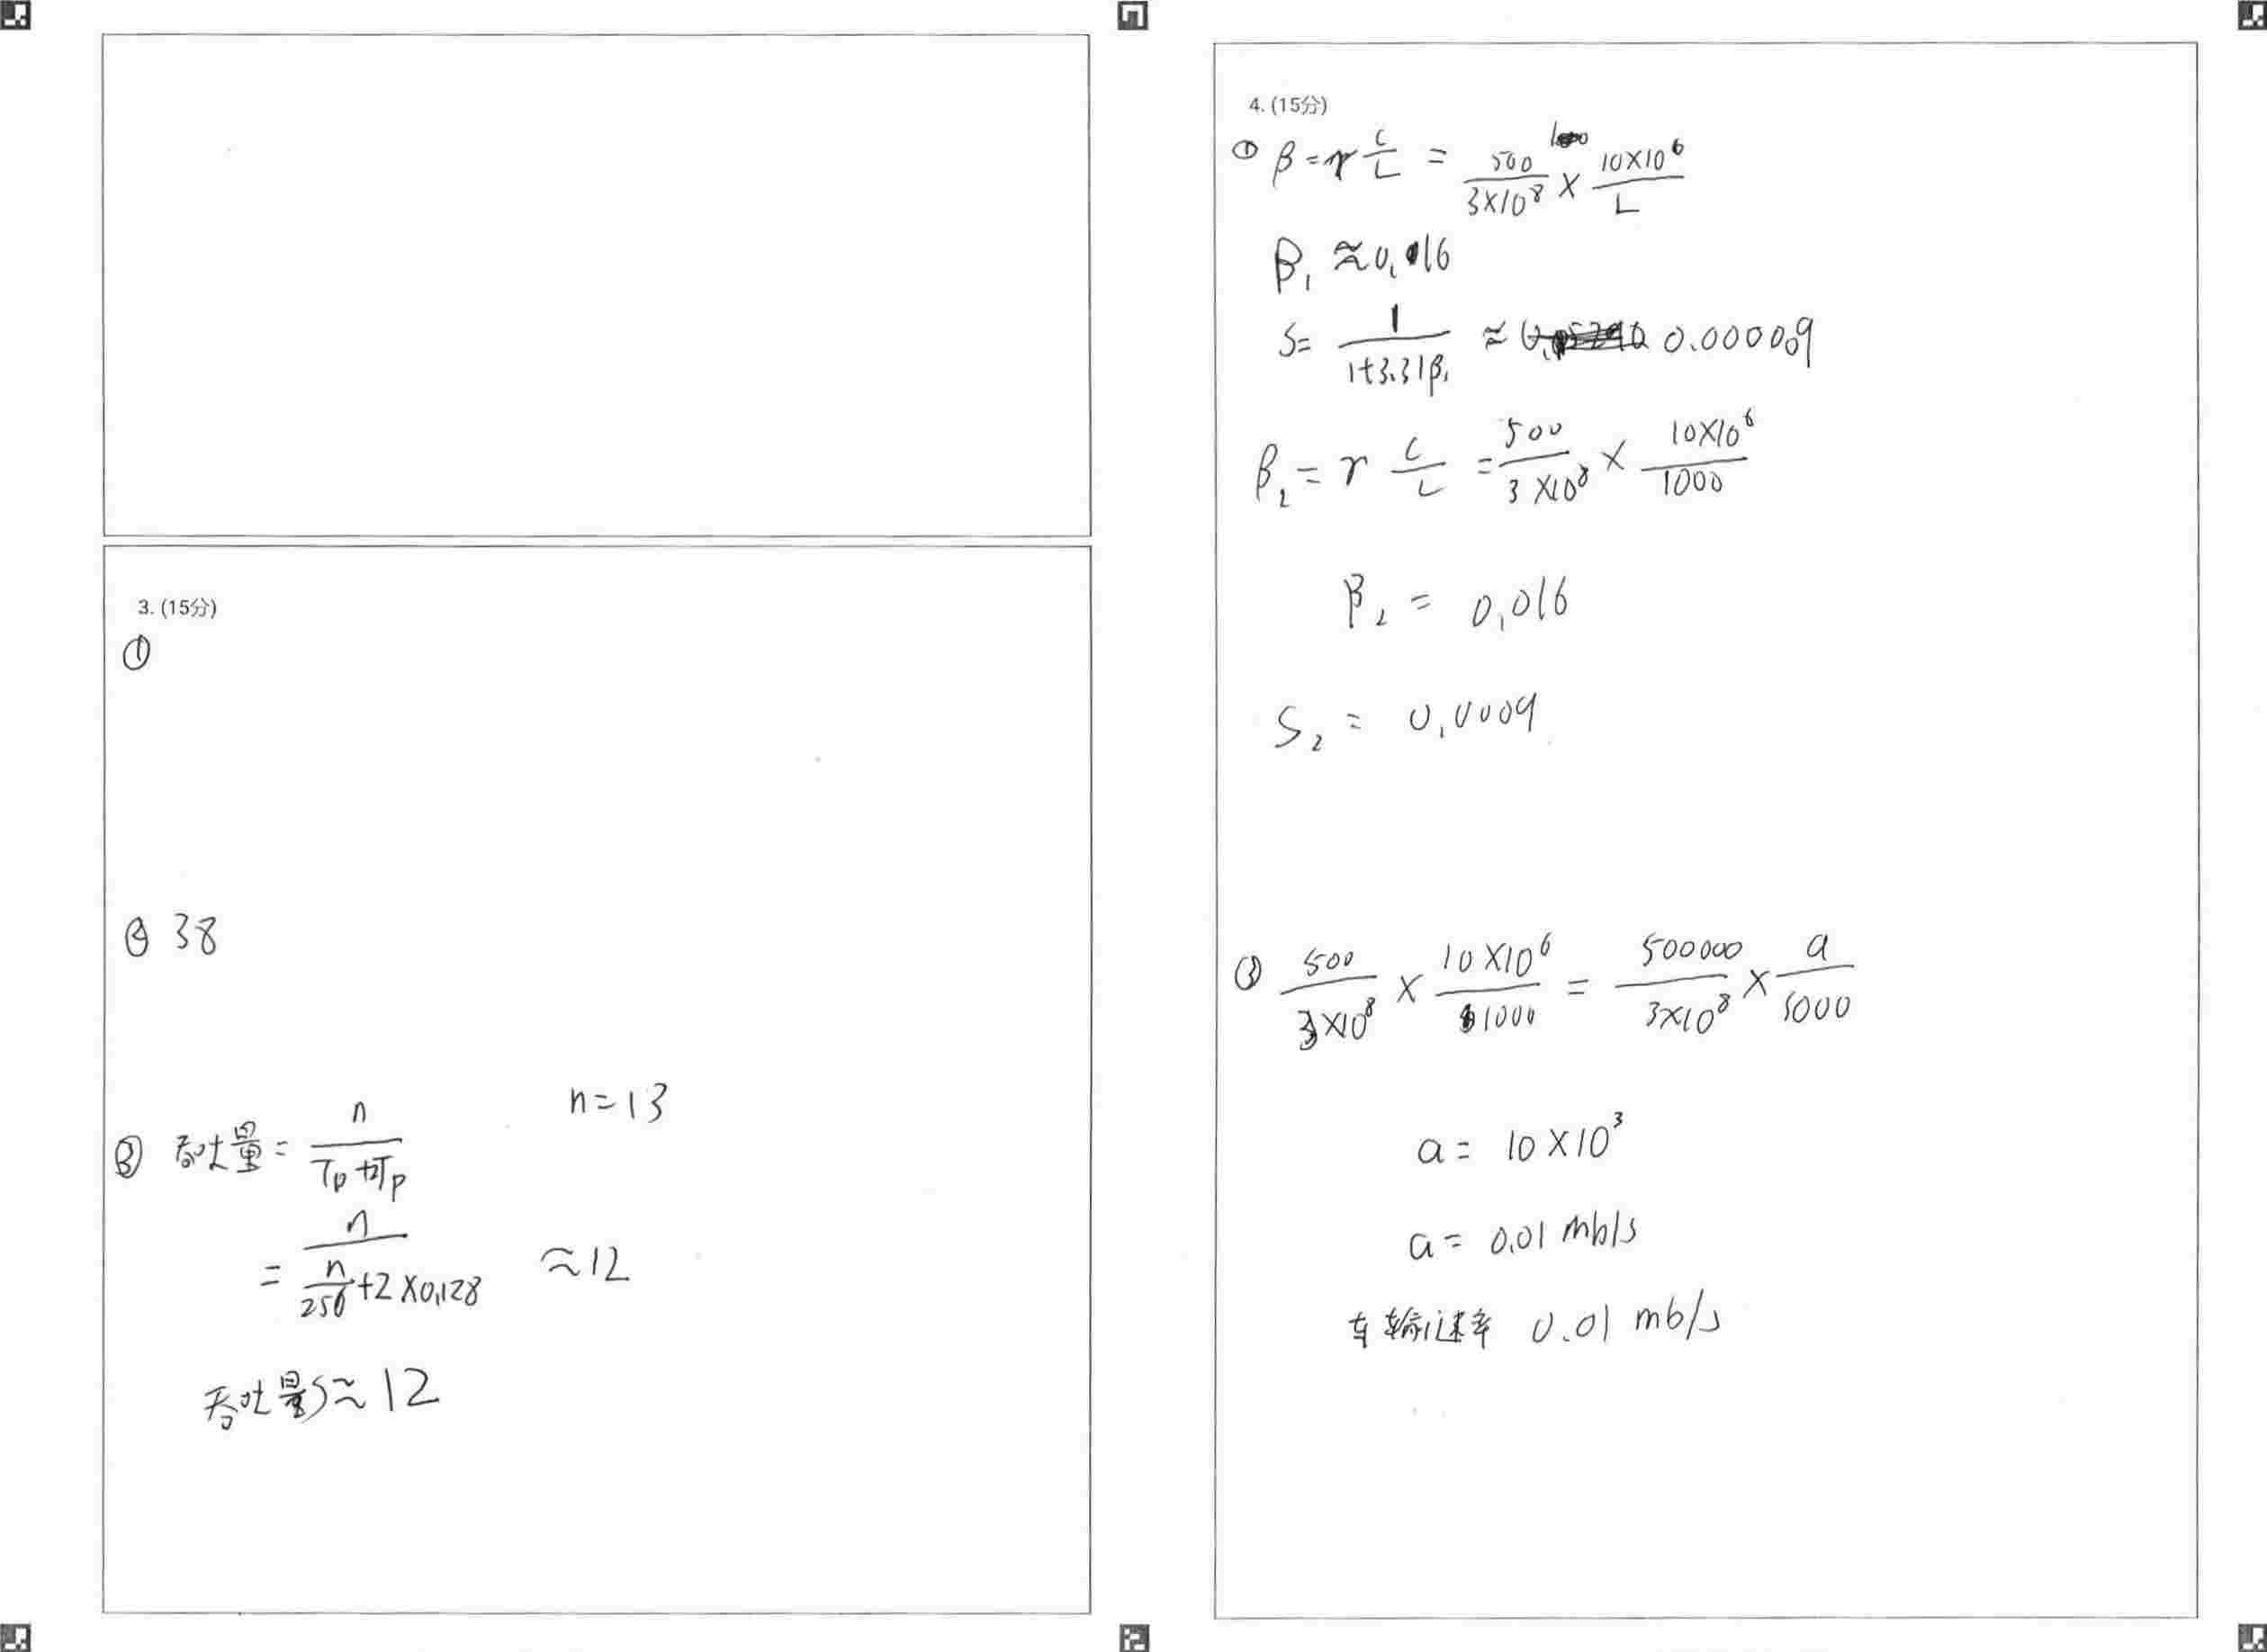 3. (15分)
①
② 38
n=13
③ 吞吐量 = n / (Tp+2Tp)
= n / (n/256 + 2×0.128) ≈12
吞吐量S≈12
4. (15分)
① β = r C/L = 500/(3×10⁸) × 10×10⁶/L
β₁ ≈0.016
S= 1/(1+3.31β₁) ≈ 0.00009
β₂ = r C/L = 500/(3×10⁸) × 10×10⁶/1000
β₂ = 0.016
S₂ = 0.0009
③ 500/(3×10⁸) × 10×10⁶/1000 = 500000/(3×10⁸) × a/5000
a = 10×10³
a = 0.01 mb/s
车输速率 0.01 mb/s